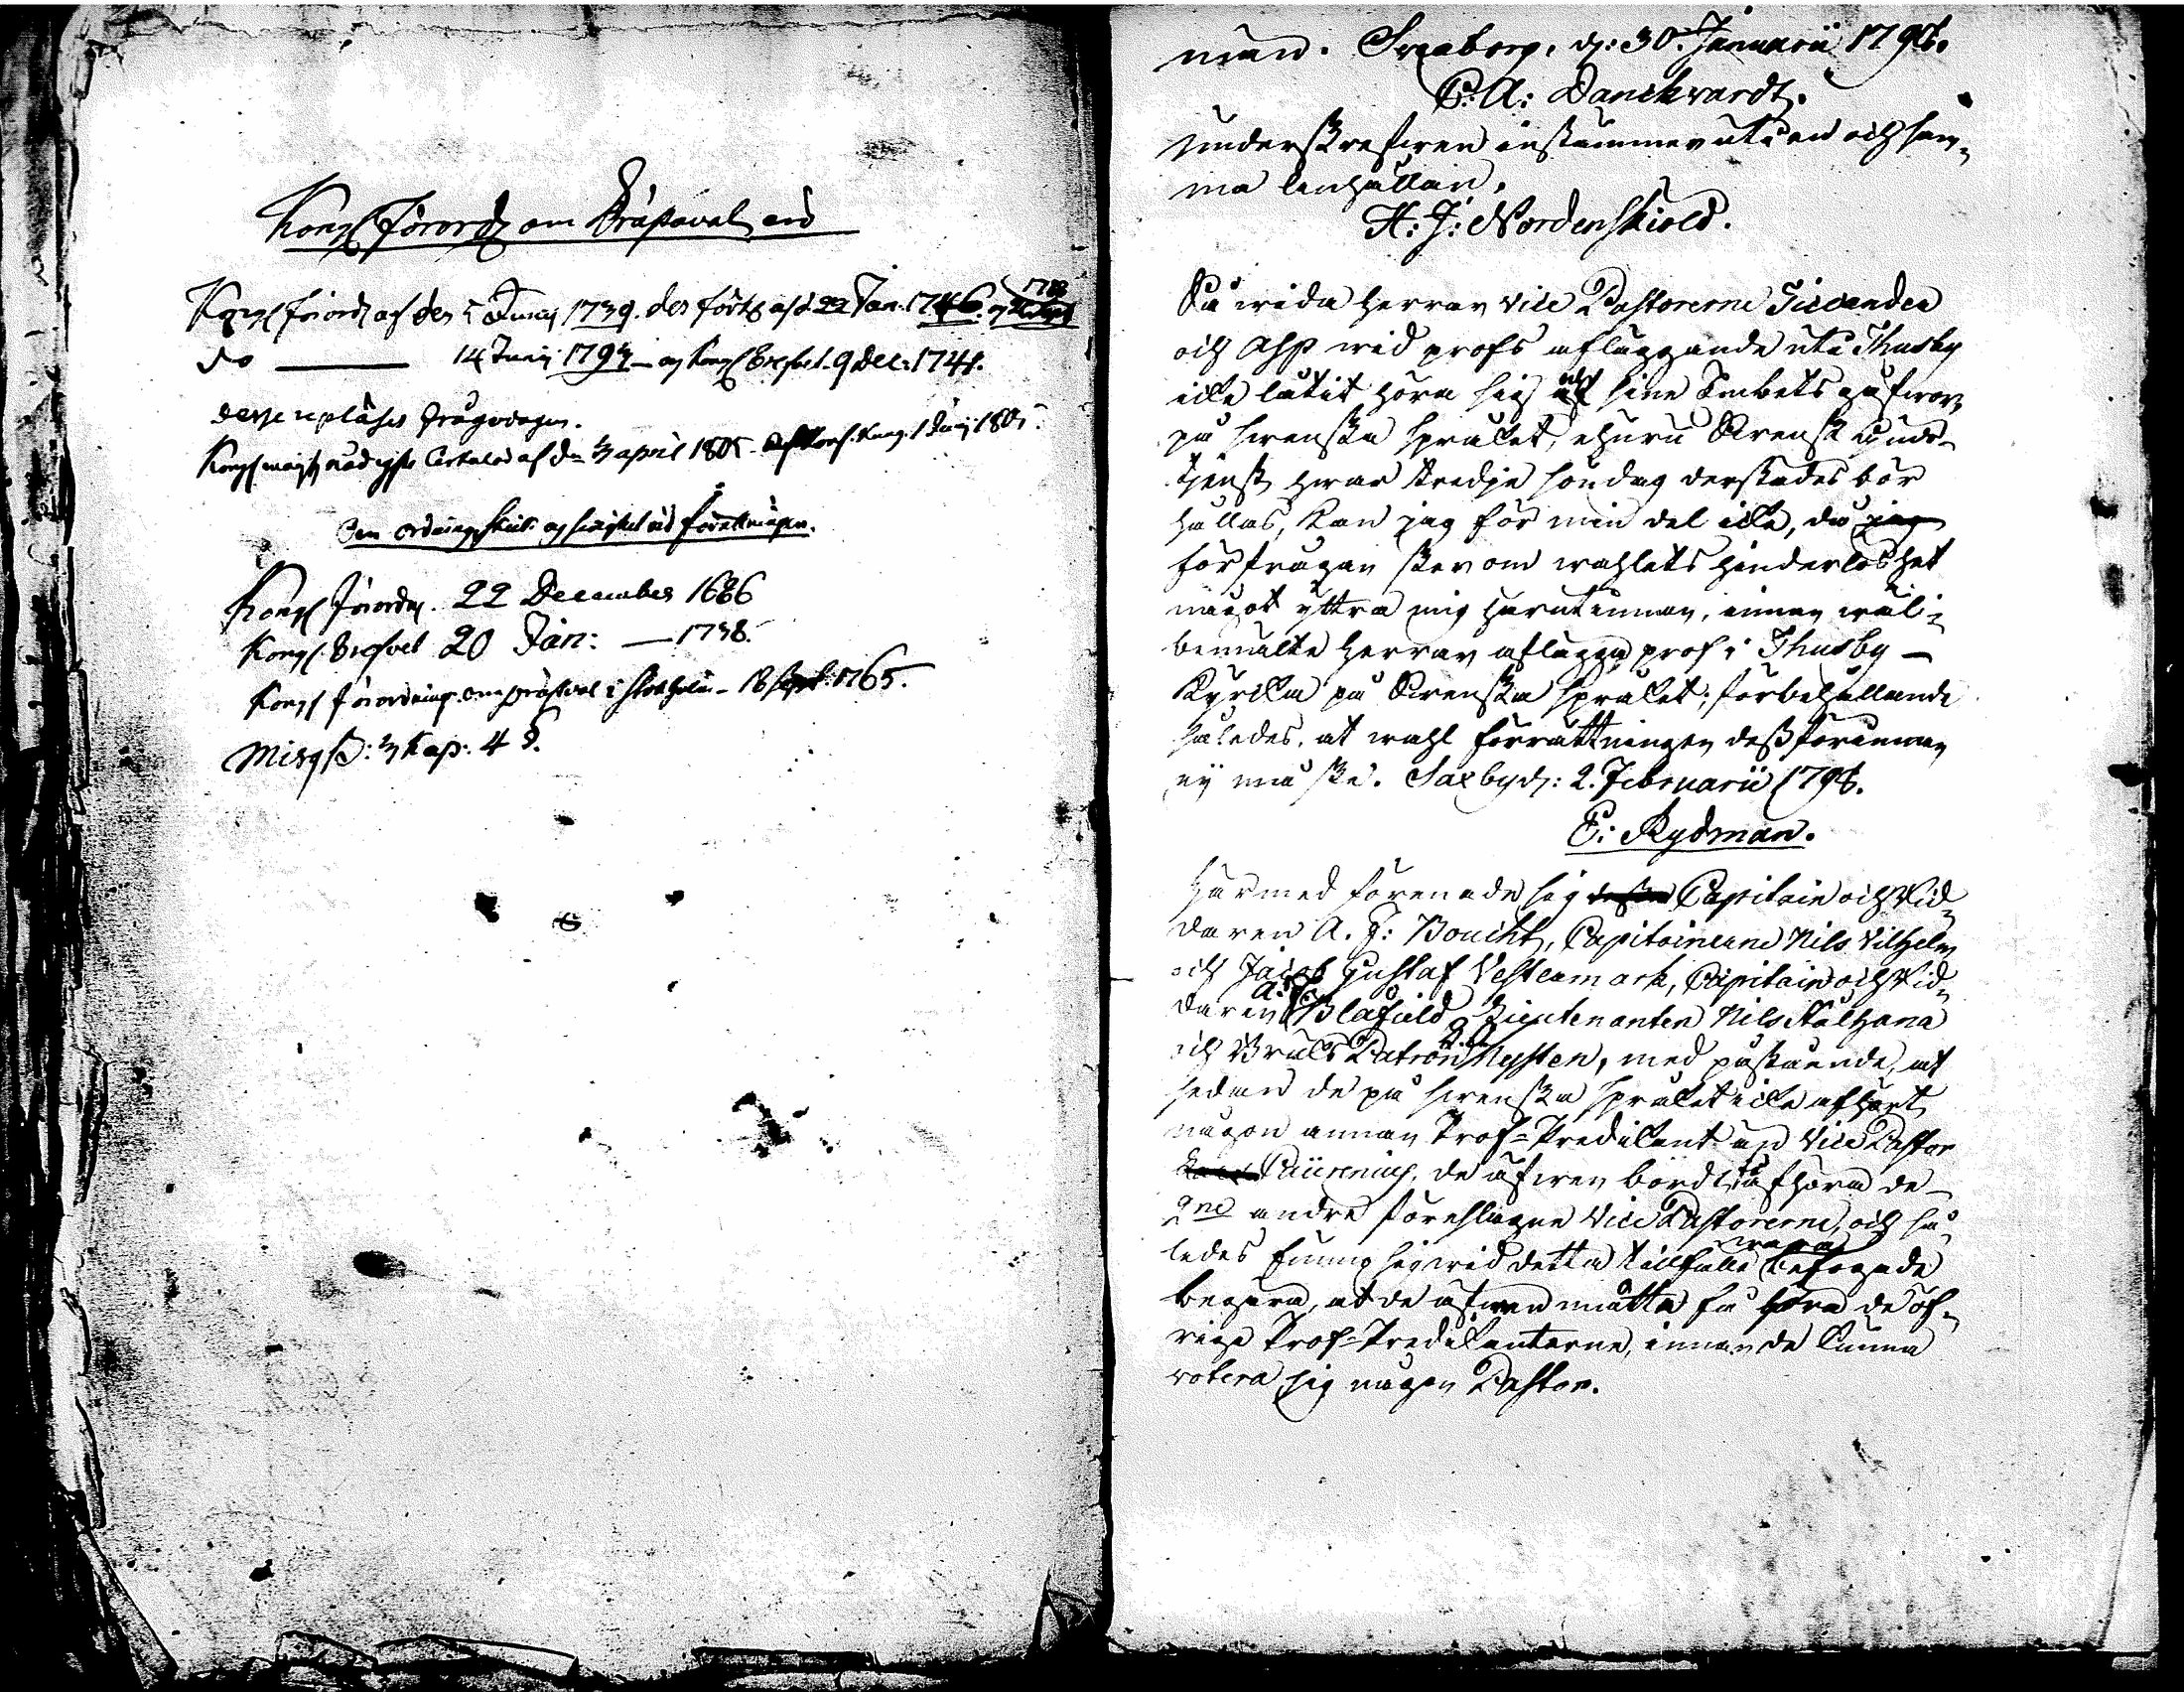 Kongl Förordg om Prästaval, och
Kongl Förordg af den 5 Junij 1739. des förkl. af d. 22 Jan. 1746.
do 14 Junij 1793 — og Kongl Brefvet. 9 Dec: 1748.
desse upläses frågodagen.
Kongl majtz nådigste Cirkulär af den 3 april 1805 1 Junij 1805.
Om ordning, skick og vid förättningen.
Kongl Förordng. 22 December 1686
Kongl. Brefvet 20 Jan: — 1738.
Kongl Förordning. om prästval i Stockholm — 18 Sept. 1765.
Kap: 4 §.
man. Sveaborg, d: 30. Januarii 1798.
C. A: Danckvardt.
Underskrefven instämmer uti en och sam-
ma lenhällan.
H: J: Nordenskiold.
Så vida Herrar Vice Pastorerne
och Asp wid profs afläggande uti Thusby
icke låtit höra sig uti sine Embets gåfwor
på swenska språket, ehuru Swensk Guds-
tjenst hwar tredje söndag derstädes bör
hållas, kan jag för min del icke, då jag
förfrågan sker om wahlets hinderlöshet
något yttra mig härutinnan, innan wäl-
bemälte Herrar aflägga prof i Thusby —
Kyrcka på Swenska språket; förbehållande
således, at wahl förrättningen dessförinnan
ej må ske. Saxby d: 2. Februarii 1798.
E: Rydman.
Härmed förenade sig Capitain och Rid-
daren A. F: Boucht, Capitainerne Nils Vilhelm
och Jacob Gustaf Vestermark, Capitain och Rid-
daren A: Blåfield, Lieutenanten Nils Stålhana
och Bruks Patron Nysten, med påstående, at
sedan de på swenska språket icke afhört
någon annan Prof-Predikant än Vice Pastor
de äfwen bordt få afhöra de
andre föreslagne Vice Pastorerne, och så-
ledes funno sig wid detta tillfälle wara befogade
begära, at de äfwen måtte få höra de öf-
rige Prof-Predikanterne, innan de kunna
votera sig någon Pastor.